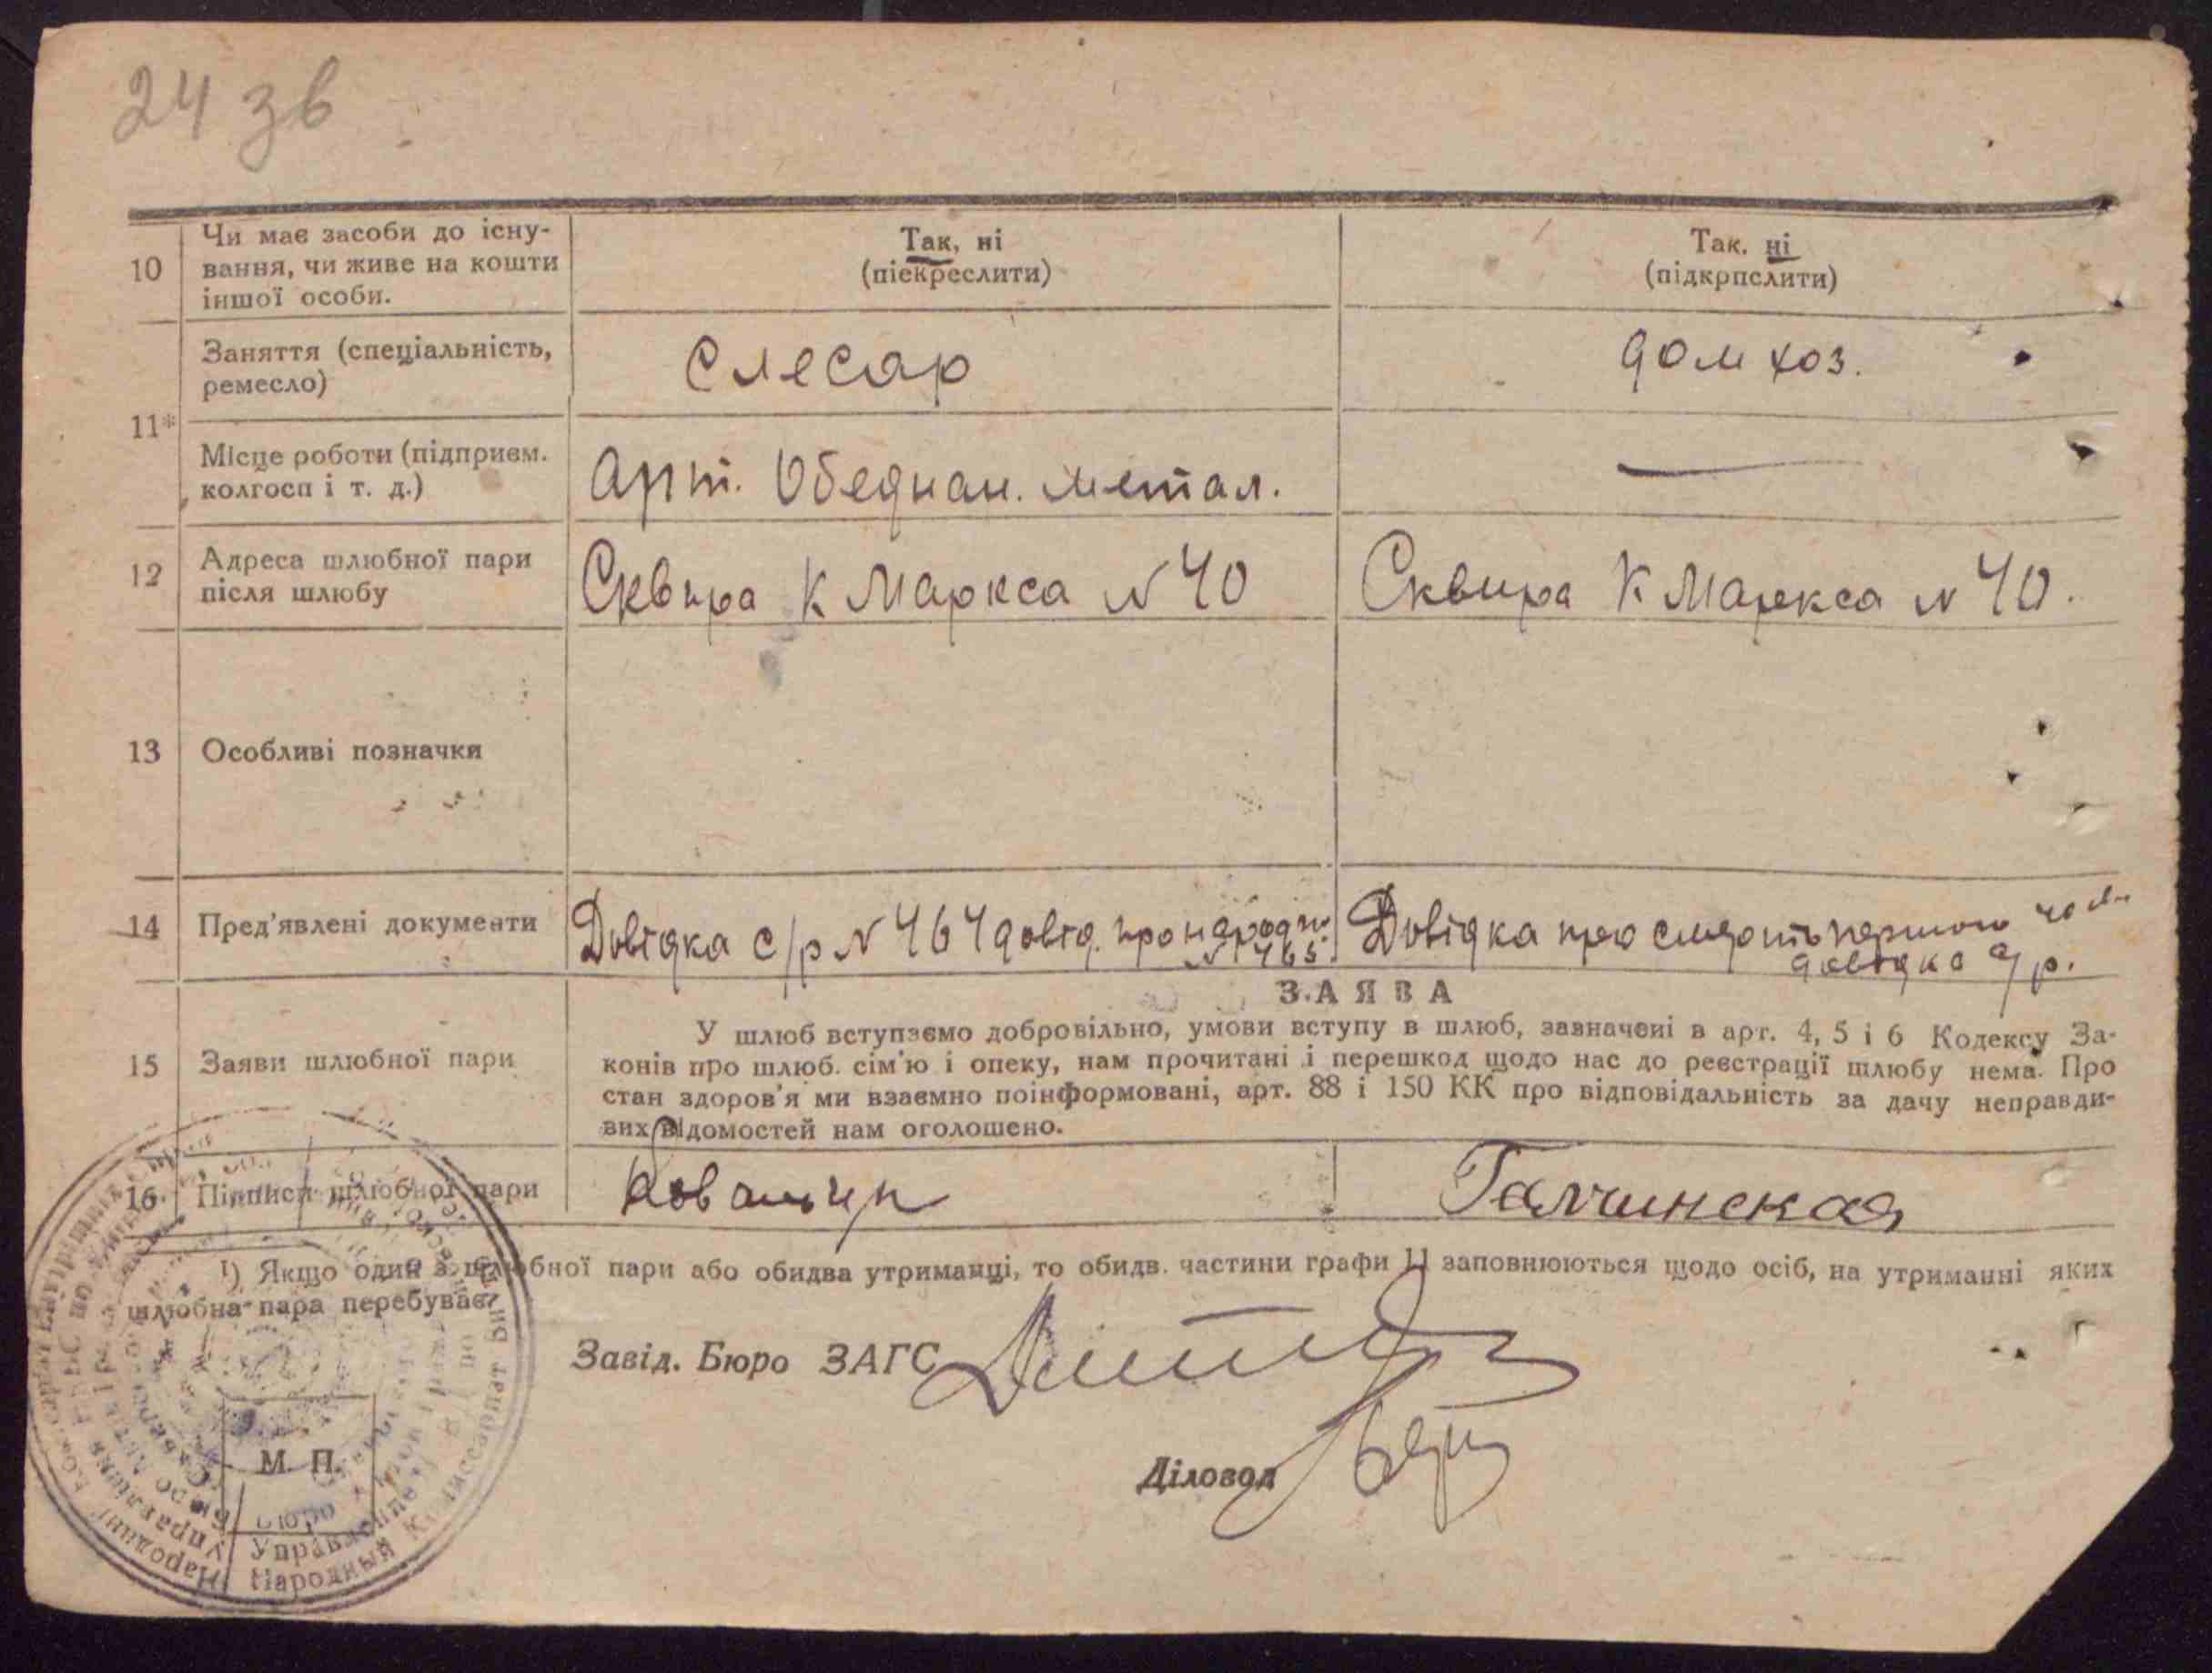 24 зв
10
Чи має засоби до існу-
вання, чи живе на кошти
іншої особи.
Так, ні
(піекреслити)
Так. ні
(підкрпслити)
11*
Заняття (спеціальність,
ремесло)
Слесар
дом хоз.
Місце роботи (підприєм.
колгосп і т. д.)
Арт. Обеднан. метал.
12
Адреса шлюбної пари
після шлюбу
Сквира К Маркса N 40
Сквира К Маркса N 40.
13
Особливі позначки
14
Пред'явлені документи
Довідка с/р N 464 довід. про народж.
N 465.
Довідка про смерть першого чол.
довідка с/р.
15
Заяви шлюбної пари
ЗАЯВА
У шлюб вступаємо добровільно, умови вступу в шлюб, зазначені в арт. 4, 5 і 6 Кодексу За-
конів про шлюб. сім'ю і опеку, нам прочитані і перешкод щодо нас до реєстрації шлюбу нема. Про
стан здоров'я ми взаємно поінформовані, арт. 88 і 150 КК про відповідальність за дачу неправди-
вих відомостей нам оголошено.
16
Підписи шлюбної пари
Ковальчук
Галчинская
1) Якщо один з шлюбної пари або обидва утриманці, то обидв. частини графи 11 заповнюються щодо осіб, на утриманні яких
шлюбна пара перебуває.
Завід. Бюро ЗАГС
Діловод
М. П.
Бюро
Народный